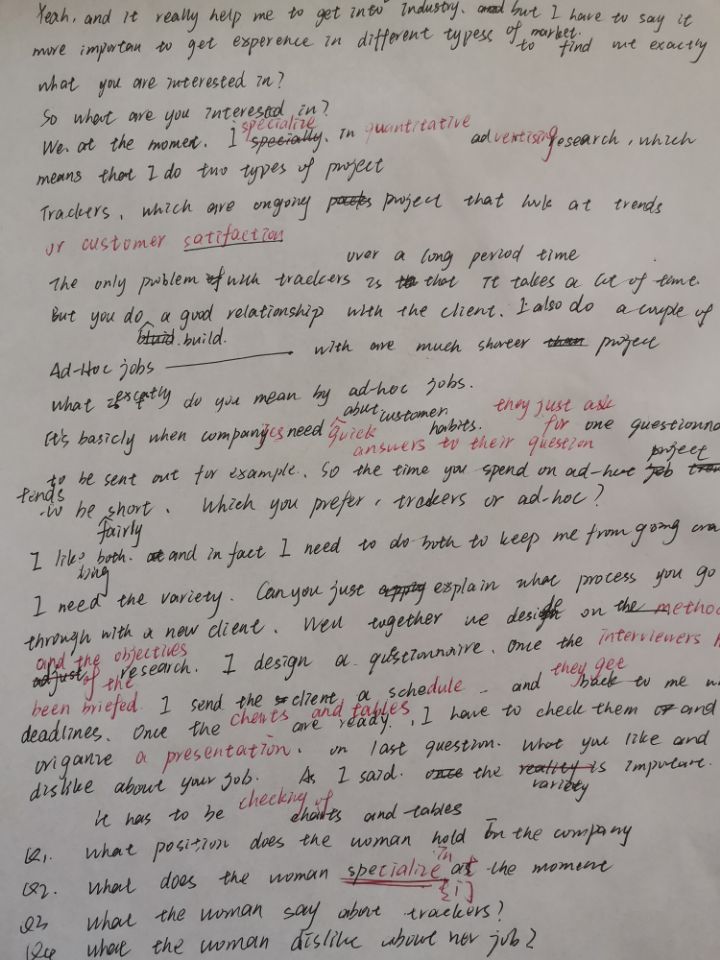 Yeah, and it really help me to get into industry. and but I have to say it
more importan to get experence in different typess of market. to find out exactly
what you are interested in?
So what are you interested in?
We. at the momet. I specially specialize in quantitative advertising research, which
means that I do two types of project
Trackers, which are ongoing project that look at trends
or customer satisfaction
over a long period time
The only problem of with trackers is that IT takes a lot of time.
But you do bluid build. a good relationship with the client. I also do a couple of
Ad-Hoc jobs with are much shorter than project
What exactly do you mean by ad-hoc jobs.
It's basicly when companies need quick about customer habits. they just ask for one questionna
answers to their question
to be sent out for example. So the time you spend on ad-hoc job project
tends to be short. Which you prefer, trackers or ad-hoc?
fairly
I like both. and in fact I need to do both to keep me from going cra
I need the variety. Can you just explain what process you go
through with a new client. Well together we decide on the metho
and the objectives
adjust of the research. I design a questionnaire. Once the interviewers h
been briefed I send the client a schedule and they get back to me w
deadlines. Once the charts and tables are ready, I have to check them or and
origanze a presentation. on last question. What you like and
dislike about your job. As I said. once the reality variety is importare.
it has to be checking of charts and tables
Q1. What position does the woman hold in the company
Q2. What does the woman specialize in at the moment
[i]
Q3 What the woman say about trackers?
Q4 what the woman dislike about her job?